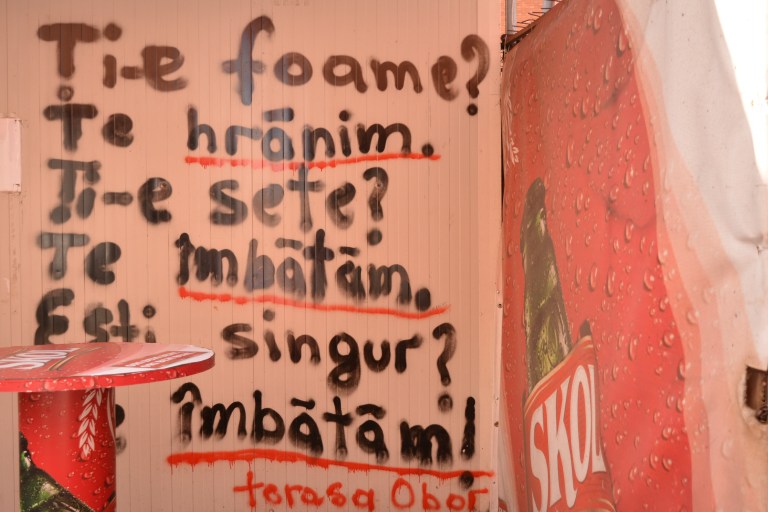 Ți-e foame?
Te hrănim.
Ți-e sete?
Te îmbătăm.
Ești singur?
îmbătăm!
terasa Obor
SKOL
SKOL